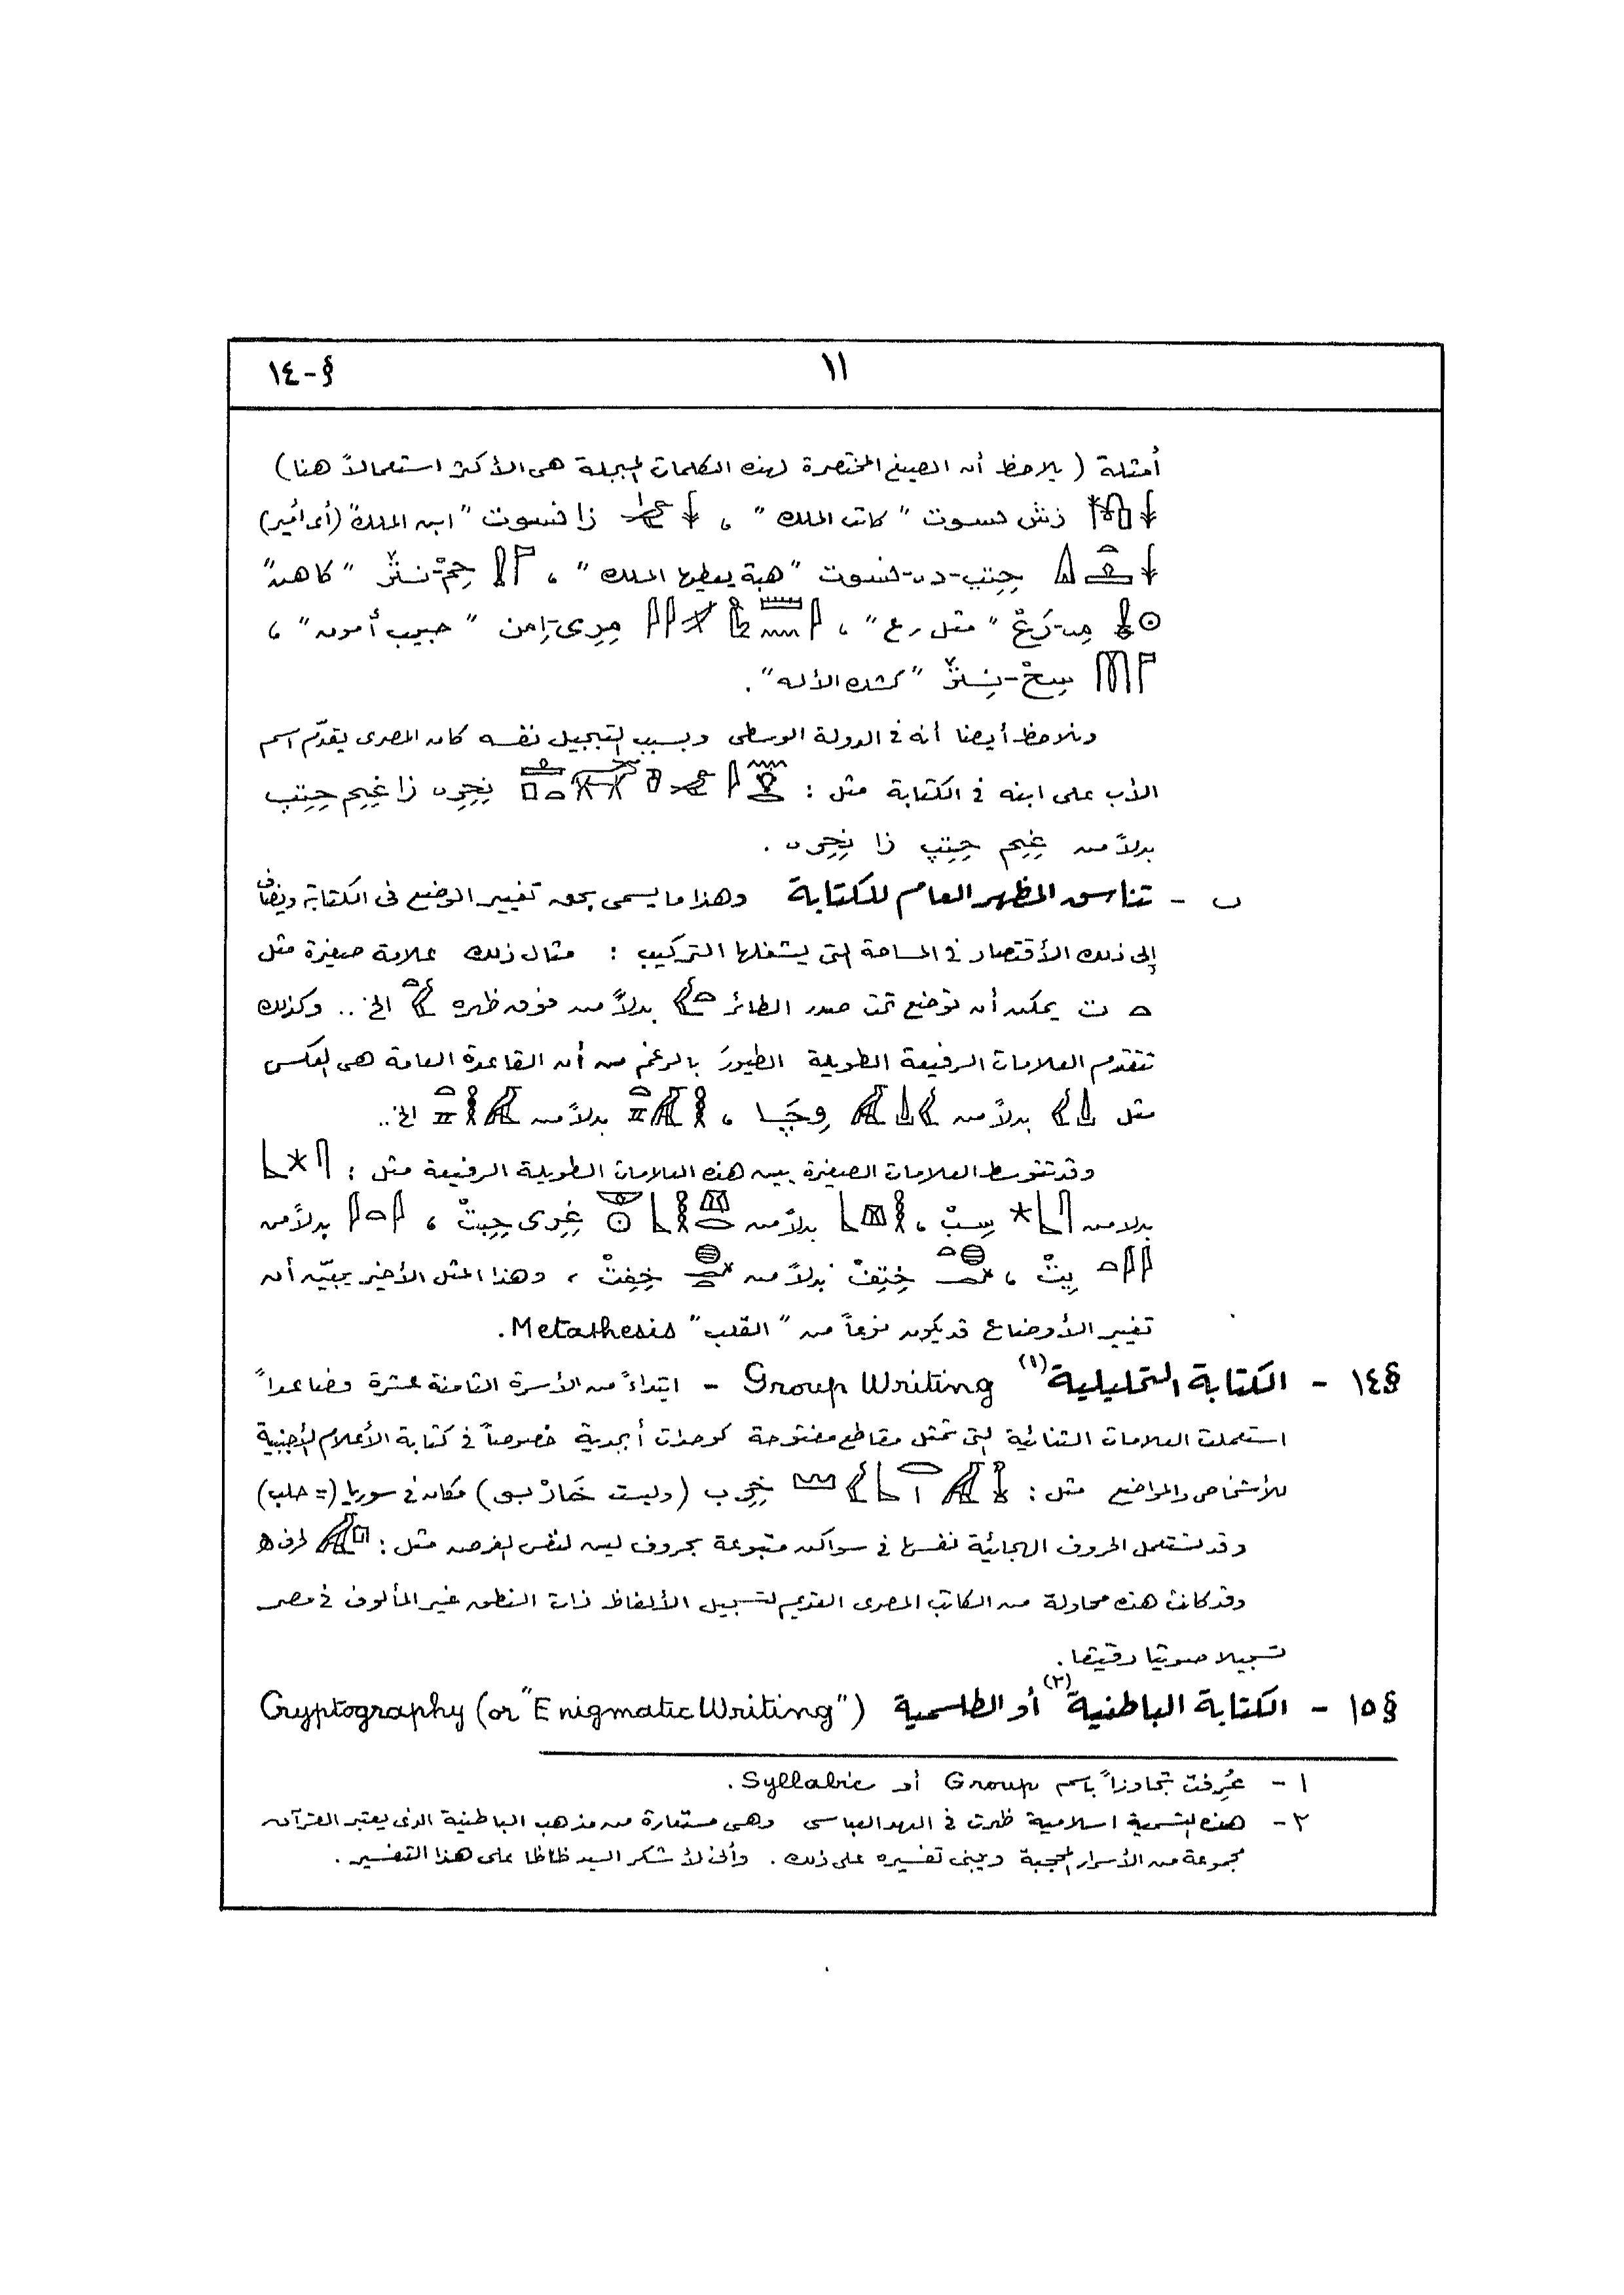 §-١٤
١١
أمثلة (يلاحظ أن الصيغ المختصرة لهذه الكلمات المبجلة هى الأكثر استعمالاً هنا)
زش نسوت "كاتب الملك" ، زا نسوت "ابن الملك" (أى أمير)
حِتِپ-دى-نسوت "هبة يعطيها الملك" ، حِمْ-نتر "كاهن"
مِى-رَعْ "مثل رع" ، مِرِى-إمن "حبيب أمون" ،
سِحْ-نِتر "كشك الأله".
ونلاحظ أيضا أنه فى الدولة الوسطى وبسبب التبجيل نفسه كان المصرى يقدّم اسم
الأب على ابنه فى الكتابة مثل : زا حِتِپ
بدلاً من حِتِپ زا .
ب - تناسق المظهر العام للكتابة وهذا ما يسمى بحق تغيير الوضع فى الكتابة ويضاف
إلى ذلك الأقتصاد فى المساحة التى يشغلها التركيب : مثال ذلك علامة صغيرة مثل
ت يمكن أن توضع تحت صدر الطائر بدلاً من فوق ظهره الخ .. وكذلك
تتقدم العلامات الرفيعة الطويلة الطيورَ بالرغم من أن القاعدة العامة هى العكس
مثل بدلاً من ، بدلاً من الخ..
وقد تتوسط العلامات الصغيرة بين هذه العلامات الطويلة الرفيعة مثل :
بدلا من سِبْ ، بدلاً من حِبِتْ ، بدلاً من
يِتْ ، خِتِفْ بدلاً من خِفِتْ ، وهذا المثل الأخير يبيّن أن
تغيير الأوضاع قد يكون نوعاً من "القلب" Metathesis.
§١٤ - الكتابة التحليلية (١) Group Writing - ابتداءً من الأسرة الثامنة عشرة فصاعداً
استعملت العلامات الثنائية التى تمثل مقاطع مفتوحة كوحدات أبجدية خصوصاً فى كتابة الأعلام الأجنبية
للأشخاص والمواضع مثل : خِرِب (وليست خَارْبو) مكان فى سوريا (= حلب)
وقد تستعمل الحروف الهجائية نفسها فى سواكن متبوعة بحروف لين لنفس الغرض مثل : لحرف ه
وقد كانت هذه محاولة من الكاتب المصرى القديم لتسجيل الألفاظ ذات النطق غير المألوف فى مصر
تسجيلا صوتيا دقيقا .
§١٥ - الكتابة الباطنية (٢) أو الطلسمية Cryptography (or "Enigmatic Writing")
١ - عُرِفت تجاوزاً باسم Group أو Syllabic .
٢ - هذه التسمية اسلامية ظهرت فى العهد العباسى وهى مستعارة من مذهب الباطنية الذى يعتبر القرآن
مجموعة من الأسرار المحجبة ويبنى تفسيره على ذلك . وأنى لأشكر السيد ظاظا على هذا التفسير .